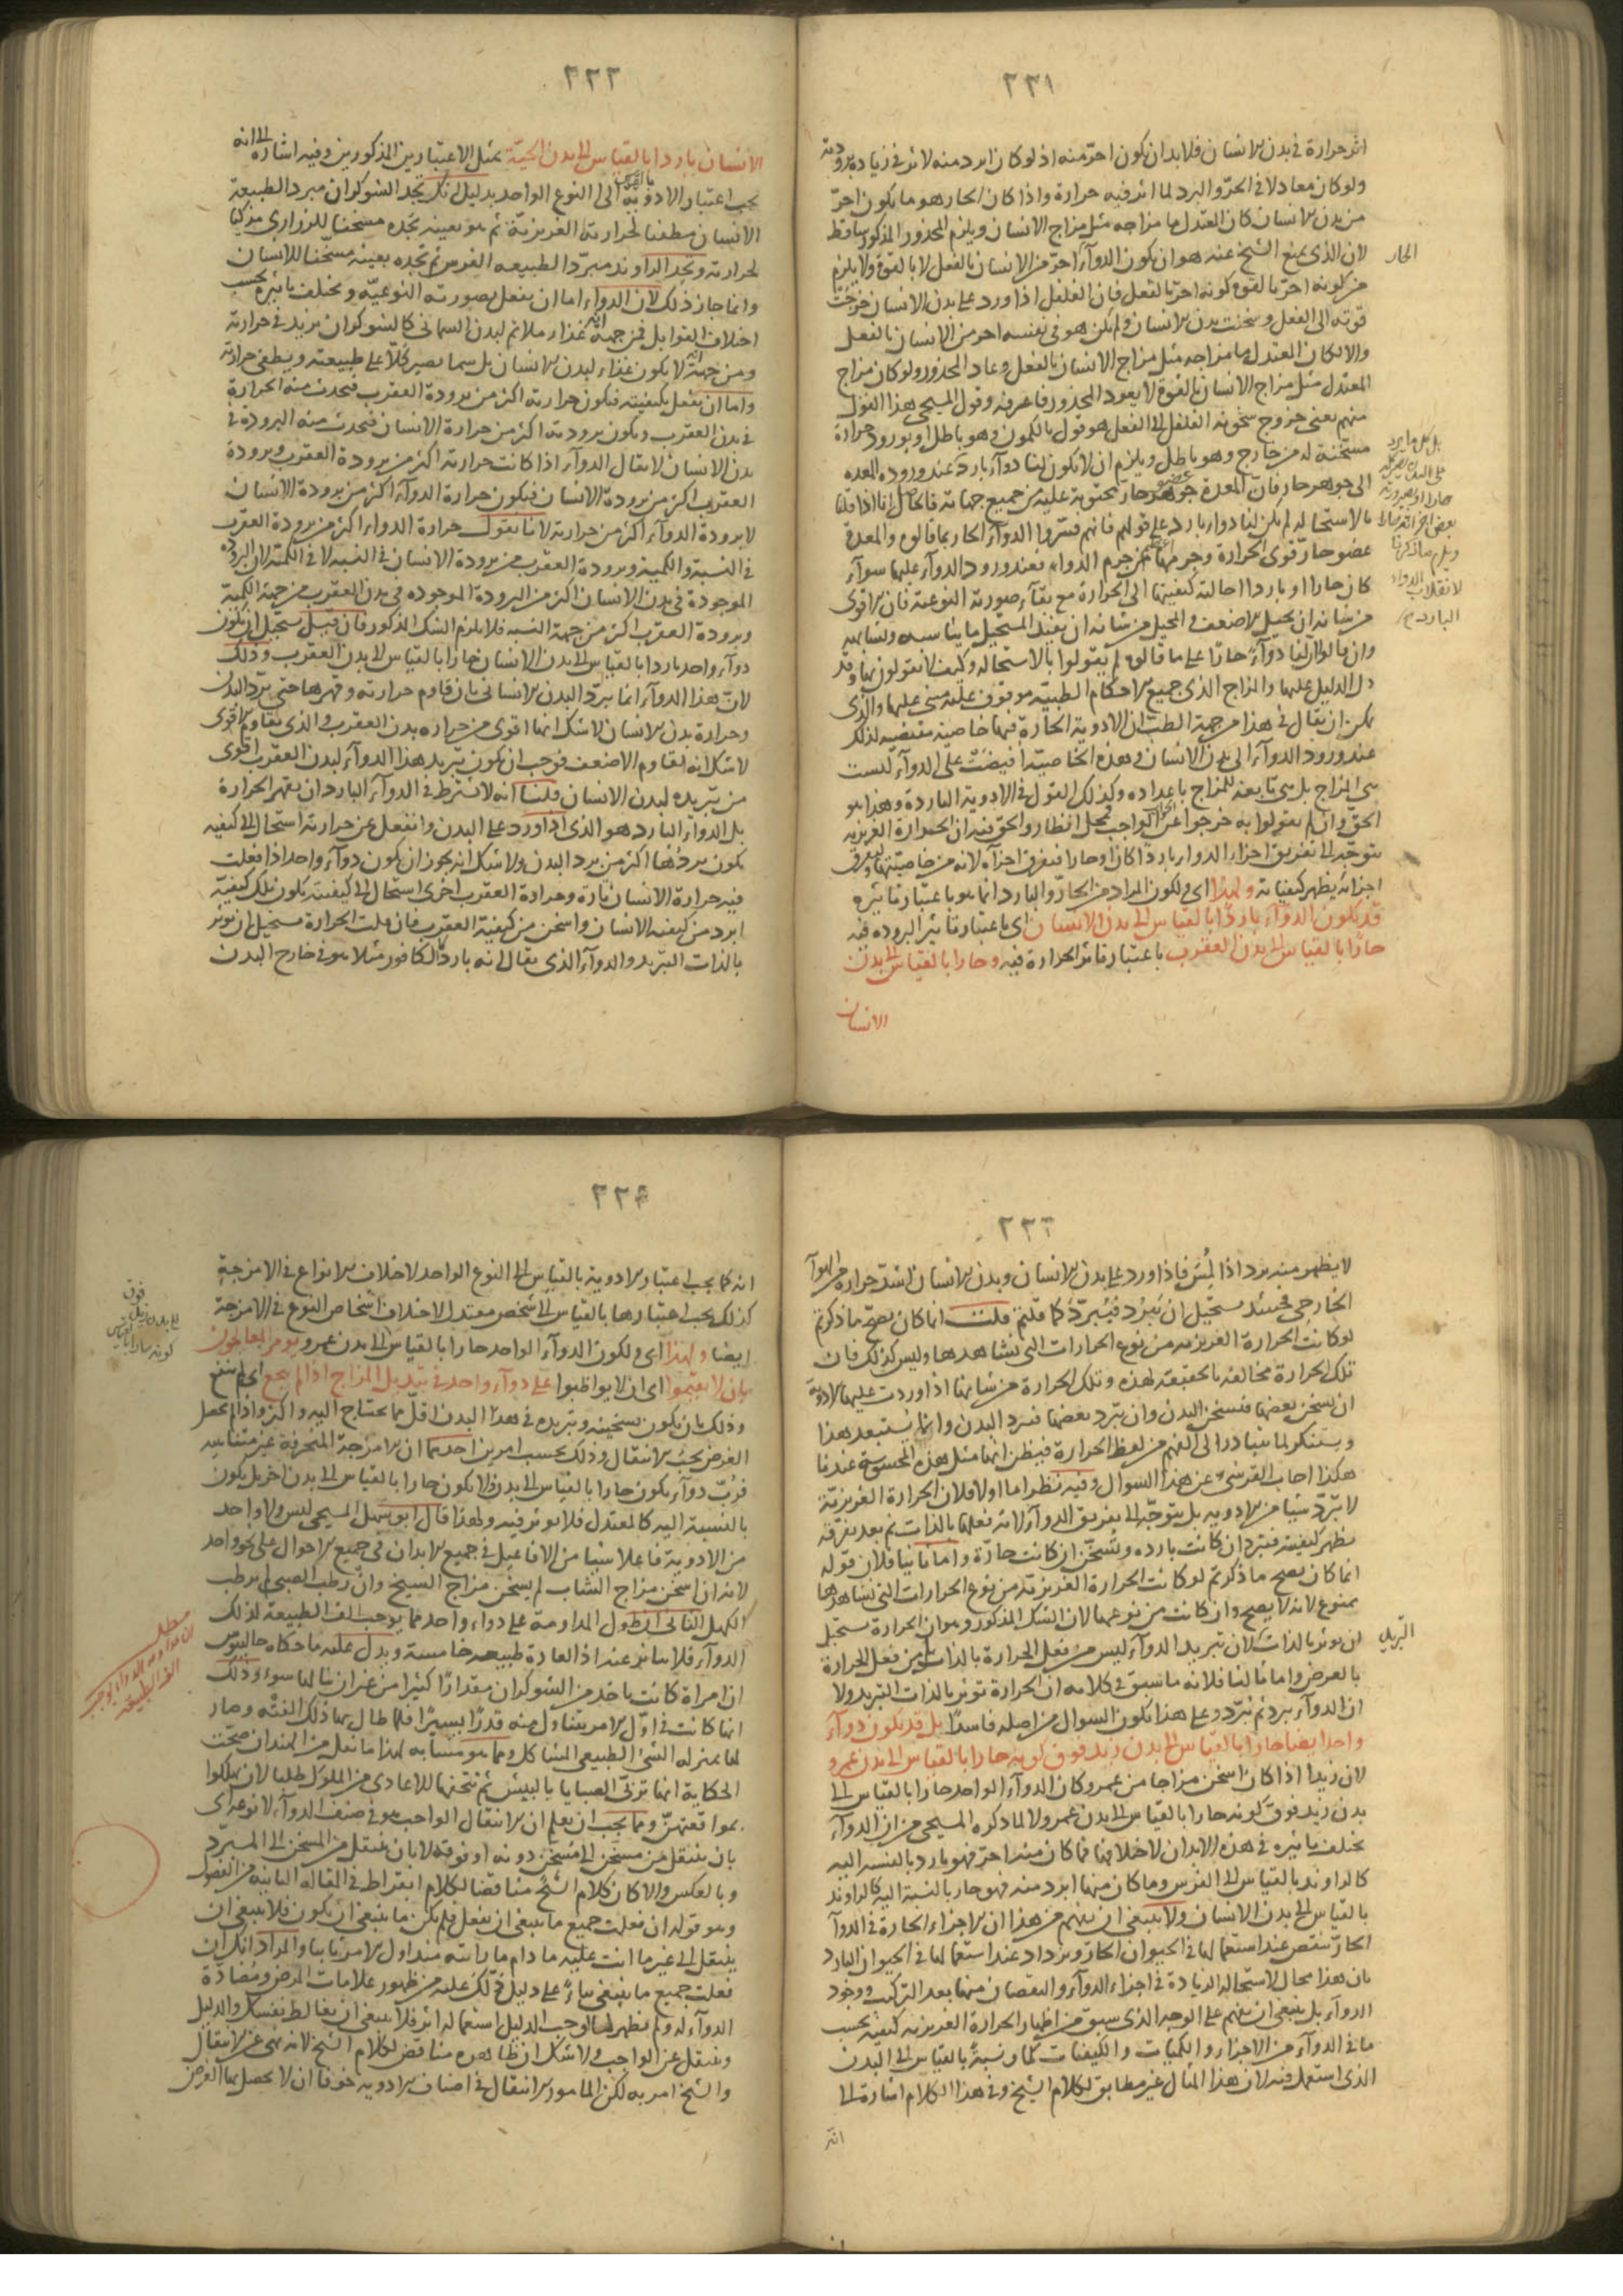 ٢٢١
اثر حرارة فى بدن الانسان فلا بد ان يكون احرّ منه اذ لو كان ابرد منه لاثر فى زيادة برودته
ولو كان معادلا فى الحرّ والبرد لما اثر فيه حرارة واذا كان الحار هو ما يكون احرّ
من بدن الانسان كان المعتدل ما مزاجه مثل مزاج الانسان ويلزم المحذور المذكور ساقط
لان الذى يمنع الشيخ عنه هو ان يكون الدوآء احرّ من الانسان بالفعل لا بالقوة ولا يلزم
من كونه احرّ بالقوة كونه احرّ بالفعل فان الفلفل اذا ورد على بدن الانسان خرجت
قوته الى الفعل وسخنت بدن الانسان ولم يكن هو فى نفسه احر من الانسان بالفعل
والا لكان المعتدل ما مزاجه مثل مزاج الانسان بالفعل وعاد المحذور ولو كان مزاج
المعتدل مثل مزاج الانسان بالقوة لا يعود المحذور فاعرفه وقول المسيحى هذا القول
منهم يعنى خروج سخونة الفلفل الى الفعل هو قول بالكمون وهو باطل او بورود حرارة
مسخنة له من خارج وهو باطل ويلزم ان لا يكون لنا دوآء بارد عند وروده المعده
الى جوهر حار فان المعدة جوهر حار محتوية عليه من جميع جهاته فالحاصل انا اذا قلنا
بالاستحالة لم يكن لنا دواء بارد على قولهم فانهم فسّروا الدوآء الحار بما قالوه والمعدة
عضو حارّ قوى الحرارة وجرمها اعظم من جرم الدواء فعند ورود الدوآء عليها سوآء
كان حارا او باردا احالت كيفيتها الى الحرارة مع بقآء صورته النوعية فان الاقوى
من شانه ان يحيل الاضعف والمحيل من شانه ان يفيد المستحيل ما يناسبه ويشابهه
وان قالوا ان لنا دوآء حارّا على ما قالوه لم يقولوا بالاستحالة وكيف لا يقولون بها وقد
دل الدليل عليها والمزاج الذى جميع الاحكام الطبية موقوف عليه مبنى عليها والذى
يمكن ان يقال فى هذا من جهة الطب ان الادوية الحارة فيها خاصية مقتضية لذلك
عند ورود الدوآء الى بدن الانسان وهذه الخاصية افيضت على الدوآء ليست
هى المزاج بل هى تابعة للمزاج باعداده وكذلك القول فى الادوية الباردة وهذا هو
الحق وان لم يقولوا به خرجوا عن الواجب فمحل انظار والحق فيه ان الحرارة الغريزية
تتوجّه الى تفريق اجزاء الدواء باردًا كان او حارا فتفرق اجزآءه لانه من خاصيتها وبتفرق
اجزائه يظهر كيفياته ولهذا اى ولكون المراد من الحارّ والبارد انما هو باعتبار تاثيره
قد يكون الدوآء باردًا بالقياس الى بدن الانسان اى باعتبار تاثير البروده فيه
حارًا بالقياس الى بدن العقرب باعتبار تاثر الحرارة فيه وحارا بالقياس الى بدن
الانسان
الحار
بل كل ما يرد
على البدن يصير كله
حارا اذ لضرورته
وبلزم ما ذكرنا
لانقلاب الدواء
البارد
٢٢٢
الانسان باردا بالقياس الى بدن الحيّة بمثل الاعتبارين المذكورين وفيه اشارة الى انه
يجب اعتبار الادوية بالقياس الى النوع الواحد بدليل انك تجد الشوكران مبرد الطبيعة
الانسان مطفئا لحرارته الغريزيّة ثم هو بعينه تجده مسخنا للزرازير مذكيا
لحرارته وتجد الراوند مبرّدا لطبيعه الفرس ثم تجده بعينه مسخنا للانسان
وانما جاز ذلك لان الدواء اما ان يفعل بصورته النوعيّه ويختلف تاثيره بحسب
اختلاف القوابل فمن جهة انه غذاء ملائم لبدن السمانى كالشوكران يزيد فى حرارته
ومن جهة انه لا يكون غذاء لبدن الانسان بل سما يصير كَلّا على طبيعته ويطفى حرارته
واما ان يفعل بكيفيته فيكون حرارته اكثر من برودة العقرب فيحدث منه الحرارة
فى بدن العقرب ويكون برودته اكثر من حرارة الانسان فيحدث منه البرودة فى
بدن الانسان لا يقال الدوآء اذا كانت حرارته اكثر من برودة العقرب وبرودة
العقرب اكثر من برودة الانسان فيكون حرارة الدوآء اكثر من برودة الانسان
لا برودة الدوآء اكثر من حرارته لانا نقول حرارة الدواء اكثر من برودة العقرب
فى النسبة والكمية وبرودة العقرب من برودة الانسان فى النسبه لا فى الكميّة لان البروده
الموجودة فى بدن الانسان اكثر من البرودة الموجوده فى بدن العقرب من جهة الكمية
وبرودة العقرب اكثر من جهة النسبه فلا يلزم الشك المذكور فان قيل يستحيل ان يكون
دوآء واحد باردا بالقياس الى بدن الانسان حارا بالقياس الى بدن العقرب وذلك
لانّ هذا الدوآء انما يبرّد البدن الانسانى بان قاوم حرارته وقهرها حتى برّد البدن
وحرارة بدن الانسان لا شك انها اقوى من حراره بدن العقرب والذى يقاوم الاقوى
لا شك انه يقاوم الاضعف فوجب ان يكون تبريد هذا الدوآء لبدن العقرب اقوى
من تبريده لبدن الانسان قلنا انه لا يشترط فى الدوآء البارد ان يقهر الحرارة
بل الدواء البارد هو الذى اذا ورد على البدن وانفعل عن حرارته استحال الى كيفيه
يكون بردها اكثر من برد البدن ولا شك انه يجوز ان يكون دوآء واحد اذا فعلت
فيه حرارة الانسان تارة وحرارة العقرب اخرى استحال الى كيفية يكون تلك كيفيّة
ابرد من كيفيه الانسان واسخن من كيفية العقرب فان قلت الحرارة مستحيل ان يؤثر
بالذات التبريد والدوآء الذى يقال له انه بارد كالكافور مثلا هو فى خارج البدن
٢٢٣
لا يظهر منه برد اذا لُمِسَ فاذا ورد على بدن الانسان وبدن الانسان اشدّ حرارة من الهوآء
الخارجى فحينئذ مستحيل ان يَبْرُد فيُبرّدَ كما قلتم قلت انما كان يصحّ ما ذكرتم
لو كانت الحرارة الغريزيه من نوع الحرارات التى نشاهدها وليس كذلك فان
تلك الحرارة مخالفة بالحقيقة لهذه وتلك الحرارة من شانها اذا وردت عليها الادوية
ان يسخن بعضها فيسخن البدن وان يبرّد بعضها فيبرد البدن وانما يُستبعد هذا
ويستنكر لما يتبادر الى الفهم من لفظ الحرارة فيظن انها مثل هذه المحسوسة عندنا
هكذا اجاب القرشى عن هذا السوال وفيه نظر اما اولا فلان الحرارة الغريزيّة
لا تبرّد شيئا من الادويه بل يتوجّه الى تفريق الدوآء لانه فعلها بالذات ثم بعد تفرقه
يظهر كيفيته فيبرد ان كانت بارده وتُسخّن ان كانت حارّة واما ثانيا فلان قوله
انما كان يصح ما ذكرتم لو كانت الحرارة الغريزيّة من نوع الحرارات التى نشاهدها
ممنوع لانه لا يصح وان كانت من نوعها لان الشك المذكور وهو ان الحرارة مستحيل
ان يوثر بالذات كلان تبريد الدوآء ليس من فعل الحرارة بالذات بل من فعل الحرارة
بالعرض واما ثالثا فلانه ما سبق فى كلامه ان الحرارة توثر بالذات التبريد ولا
ان الدوآء يبرد ثم يُبرّد وعلى هذا يكون السوال من اصله فاسدًا بل قد يكون دوآء
واحد ايضا حارا بالقياس الى بدن زيد فوق كونه حارا بالقياس الى بدن عمرو
لان زيدا اذا كان اسخن مزاجا من عمرو كان الدوآء الواحد حارا بالقياس الى
بدن زيد فوق كونه حارا بالقياس الى بدن عمرو لا لما ذكره المسيحى من ان الدوآء
يختلف تاثيره فى هذه الابدان لاختلافها فما كان منها احرّ فهو بارد بالنسبه اليه
كالراوند بالقياس الى الفرس وما كان منها ابرد منه فهو حار بالنسبة اليه كالراوند
بالقياس الى بدن الانسان ولا ينبغى ان يفهم من هذا ان الاجزاء الحارة فى الدوآء
الحارّ تنقص عند استعمالها فى الحيوان الحارّ ويزداد عند استعمالها فى الحيوان البارد
فان هذا محال لاستحالة الزيادة فى اجزاء الدوآء والنقصان منها بعد التركيب ووجود
الدوآء بل ينبغى ان يفهم على الوجه الذى سبق من اظهار الحرارة الغريزيه كيفية بحسب
ما فى الدوآء من الاجزاء والكميات والكيفيات كما ونسبةً بالقياس الى البدن
الذى استعمل فيه لان هذا المثال غير مطابق لكلام الشيخ وفى هذا الكلام اشارة الى
انه
التبريد
٢٢٤
انه كما يجب اعتبار الادوية بالقياس الى النوع الواحد لاختلاف الانواع فى الامزجة
كذلك يجب اعتبارها بالقياس الى شخص معتدل لاختلاف اشخاص النوع فى الامزجة
ايضا ولهذا اى ولكون الدوآء الواحد حارا بالقياس الى بدن عمرو يومر المعالجون
بان لا يقيموا اى ان لا يواظبوا على دوآء واحد فى تبديل المزاج اذا لم ينجع اى لم ينفع
وذلك بان يكون تسخينه وتبريده فى هذا البدن اقلّ مما يحتاج اليه او اكثر واذا لم يحصل
الغرض يجب الانتقال وذلك بحسب امرين احدهما ان الامزجة المنحرفة غير متناهيه
فرُبّ دوآء يكون حارا بالقياس الى بدن ولا يكون حارا بالقياس الى بدن اخر بل يكون
بالنسبة اليه كالمعتدل فلا يوثر فيه ولهذا قال ابو سهل المسيحى ليس ولا واحد
من الادوية فاعلا شيئا من الافاعيل فى جميع الابدان فى جميع الاحوال على نحو واحد
لانه ان اسخن مزاج الشاب لم يسخن مزاج الشيخ وان رطب الصبى لم يرطب
الكهل الثانى ان طول المداومة على دواء واحد مما يوجب الف الطبيعة لذلك
الدوآء فلا يتاثر عنه اذ العادة طبيعه خامسة ويدل عليه ما حكاه جالينوس
ان امراة كانت تاخذ من الشوكران مقدارًا كثيرا من غير ان ينالها سوء وذلك
انها كانت فى اوّل الامر يتناول منه قدرًا يسيرًا فلما طال بها ذلك الفته وصار
لها بمنزلة الشئ الطبيعى المشاكل ومما هو متشابه لهذا ما نقل من الهند ان صحت
الحكاية انها تربّى الصبايا بالبيش ثم تتحفها للاعادى من الملوك طلبا لان يهلكوا
بمواقعتهنّ ومما يجب ان يعلم ان الانتقال الواجب هو فى صنف الدوآء لا نوعه اى
بان ينتقل من مسخّن الى مُسَخّن دونه او فوقه لا بان ينتقل من المسخن الى المبرّد
وبالعكس والا لكان كلام الشيخ مناقضا لكلام ابقراط فى المقاله الثانية من الفصول
وهو قوله ان فعلت جميع ما ينبغى ان تفعل فلم يكن ما ينبغى ان يكون فلا ينبغى ان
ينتقل الى غير ما انت عليه ما دام ما رايته منذ اول الامر ثابتا والمراد انك ان
فعلت جميع ما ينبغى بناءً على دليل دلّك عليه من ظهور علامات المرض ومضادّة
الدوآء له ولم يظهر لما اوجب الدليل استعماله اثر فلا ينبغى ان تغالط نفسك والدليل
وينتقل عن الواجب ولا شك ان ظاهره مناقض لكلام الشيخ لانه نهى عن الانتقال
والشيخ امر به لكن المامور الانتقال فى اصناف الادويه خوفا ان لا يحصل بها الغرض
فوق
كونه حارا بالقياس
مطلب
ان مداومة الدواء يوجب
الف الطبيعة